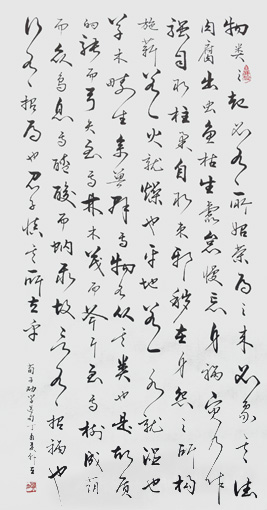 物類之起必有所始榮辱之來必象其德
肉腐出蟲魚枯生蠹怠慢忘身禍災乃作
強自取柱柔自取束邪穢在身怨之所構
施薪若一火就燥也平地若一水就濕也
草木疇生禽獸群焉物各從其類也是故質
的張而弓矢至焉林木茂而斧斤至焉樹成蔭
而眾鳥息焉醯酸而蚋聚焉故言有招禍也
行有招辱也君子慎其所立乎
荀子勸學篇句丁酉